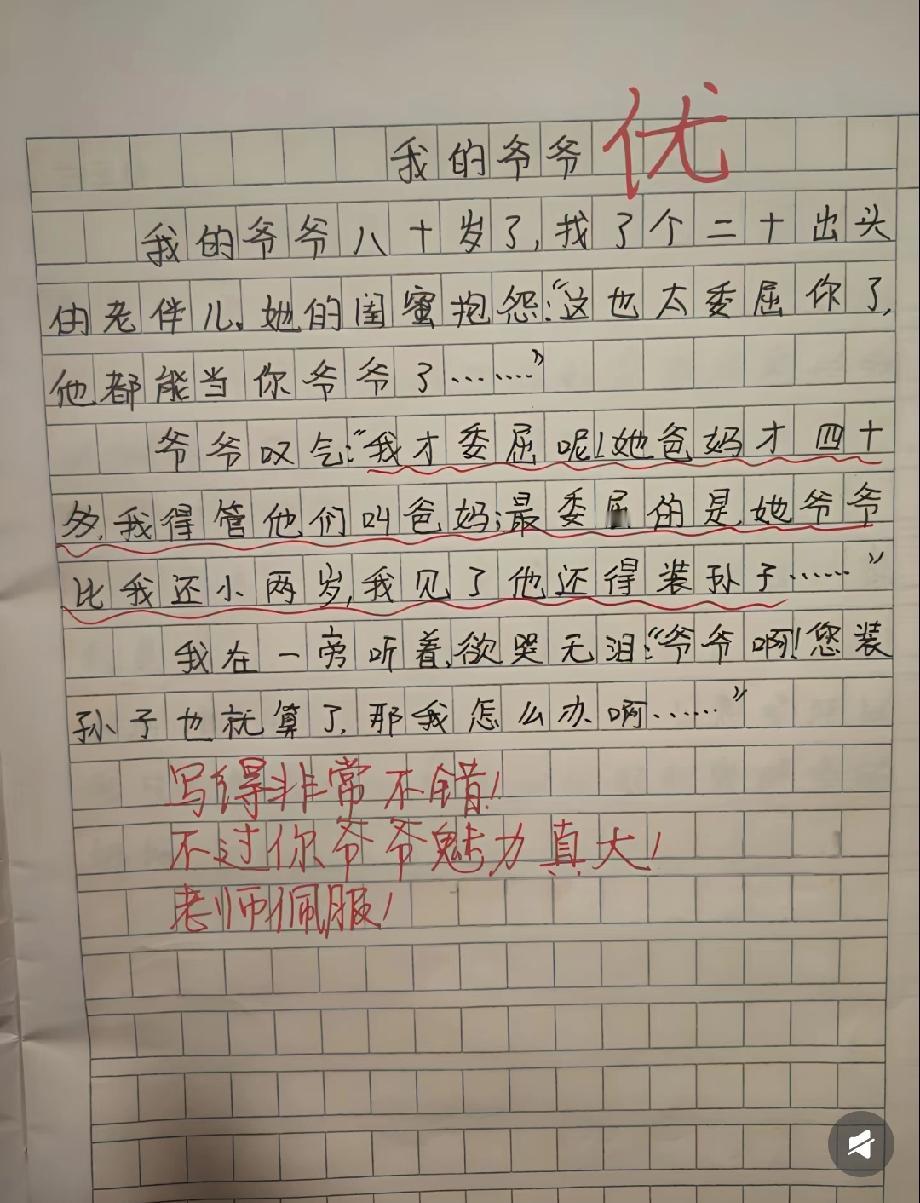 我的爷爷 优
我的爷爷八十岁了,找了个二十出头
的老伴儿。她的闺蜜抱怨:“这也太委屈你了,
他都能当你爷爷了……”
爷爷叹气:“我才委屈呢!她爸妈才四十
多,我得管他们叫爸妈;最委屈的是,她爷爷
比我还小两岁,我见了他还得装孙子……”
我在一旁听着,欲哭无泪:“爷爷啊!您装
孙子也就算了,那我怎么办啊……”
写得非常不错!
不过你爷爷魅力真大!
老师佩服!